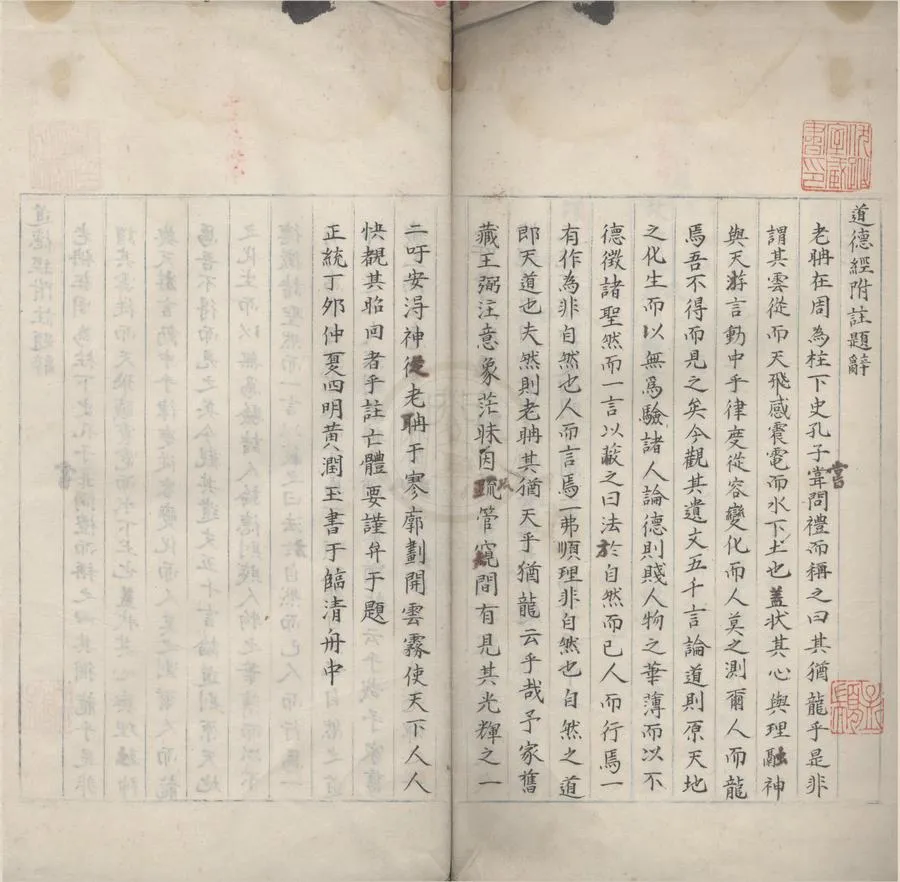 道德經附註題辭
老聃在周為柱下史孔子甞問禮而稱之曰其猶龍乎是非
謂其雲從而天飛感震電而水下土也蓋狀其心與理融神
與天游言動中乎律度從容變化而人莫之測爾人而龍
焉吾不得而見之矣今觀其遺文五千言論道則原天地
之化生而以無為驗諸人論德則賤人物之華薄而以不
德徵諸聖然而一言以蔽之曰法於自然而已人而行焉一
有作為非自然也人而言焉一弗順理非自然也自然之道
即天道也夫然則老聃其猶天乎猶龍云乎哉予家舊
藏王弼注意象茫昧因疏管窺間有見其光輝之一
二吁安淂神從老聃于寥廓劃開雲霧使天下人人
快覩其昭回者乎註亡體要謹弁于題
正統丁夘仲夏四明黃潤玉書于臨清舟中